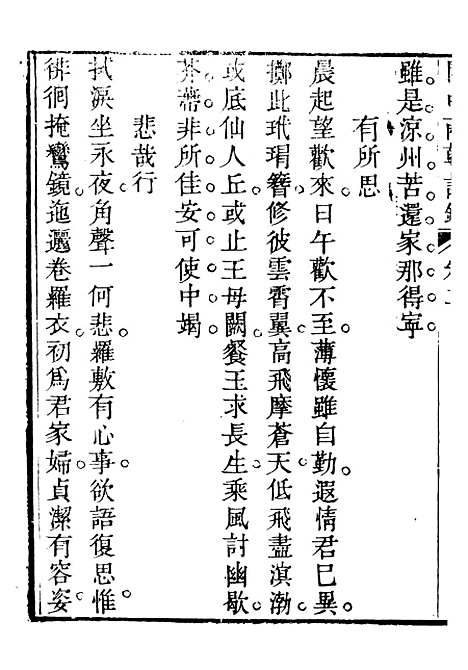 雖是涼州苦還家那得寧
有所思
晨起望歡來日午歡不至薄懷雖自勤遐情君已異
擲此玳瑁簪修彼雲霄翼高飛摩蒼天低飛盡滇渤
或底仙人丘或止王母闕餐玉求長生乘風討幽歇
芥蔕非所佳安可使中竭
悲哉行
拭淚坐永夜角聲一何悲羅敷有心事欲語復思惟
徘徊掩鸞鏡迤邐卷羅衣初為君家婦貞潔有容姿